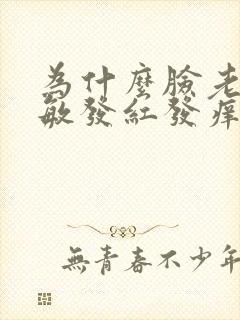 為什麼臉老
敏發紅發痒
無青春不少年